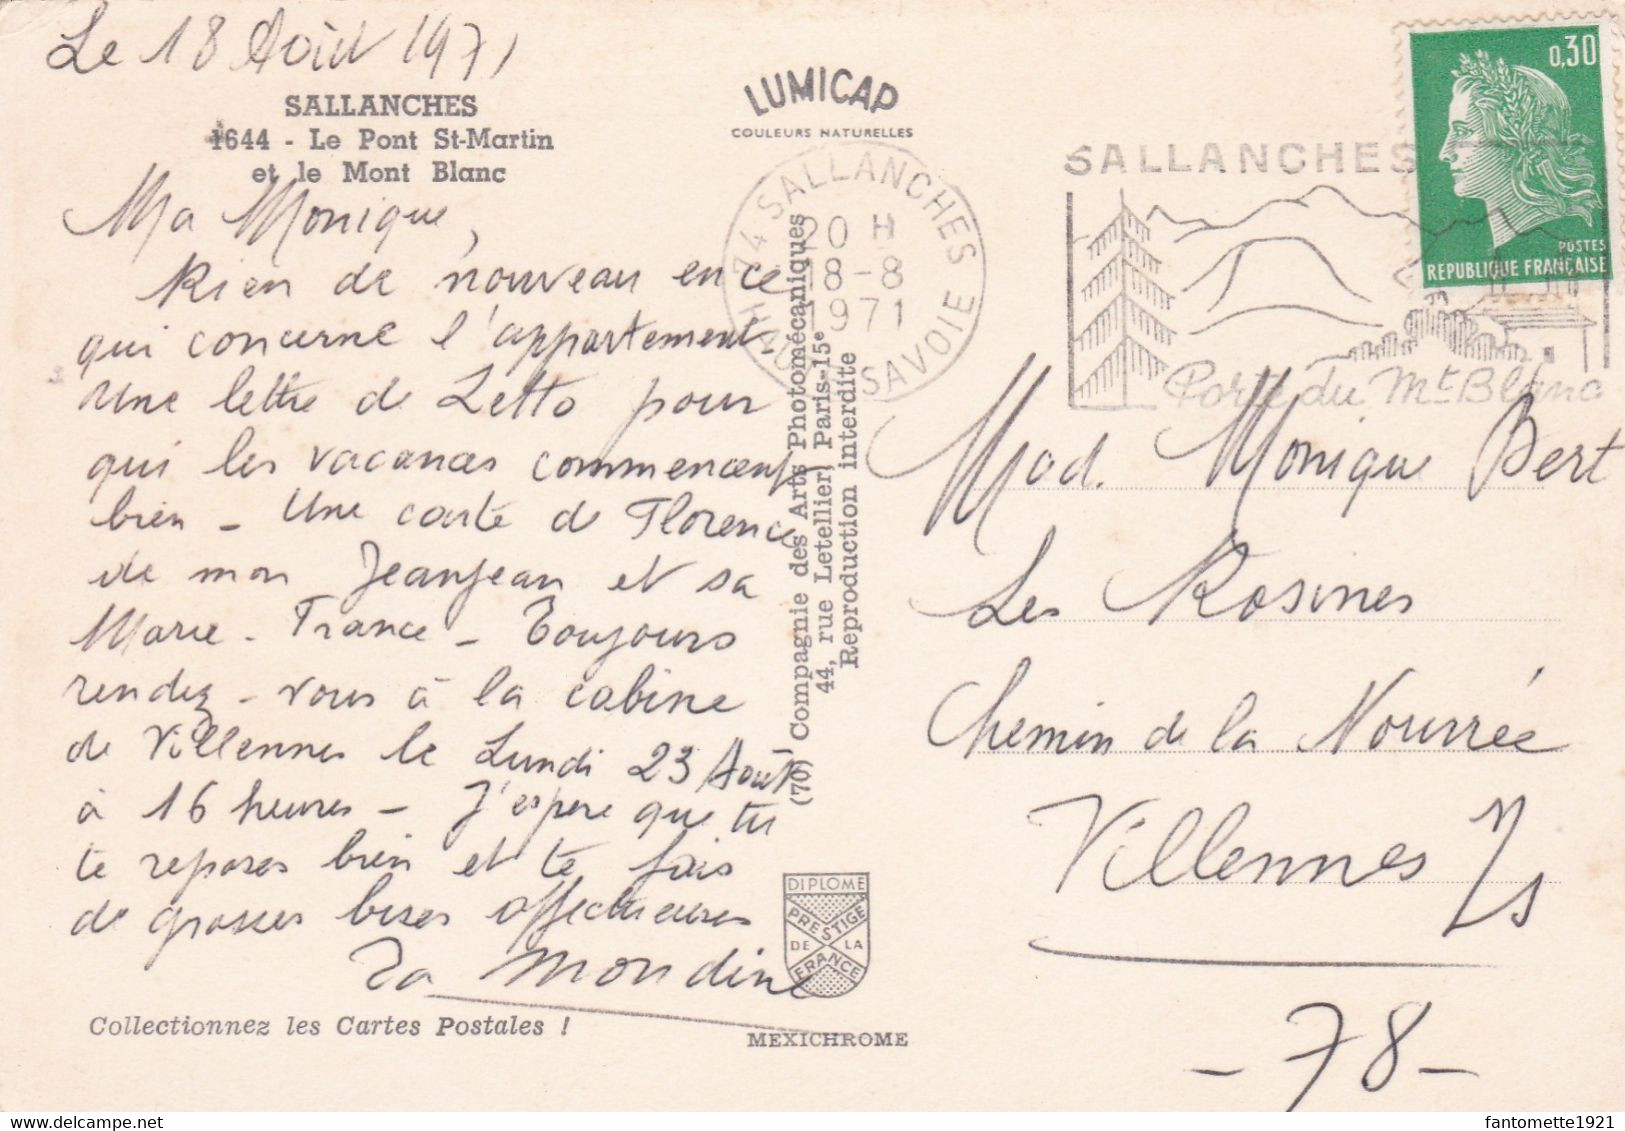 Le 18 Août 1971
SALLANCHES
1644 - Le Pont St-Martin
et le Mont Blanc
Ma Monique,
Rien de nouveau en ce
qui concerne l'appartement.
Une lettre de Letto pour
qui les vacances commencent
bien - Une carte de Florence
de mon Jeanjean et sa
Marie-France - Toujours
rendez-vous à la cabine
de Villennes le Lundi 23 Août
à 16 heures - J'espère que tu
te reposes bien et te fais
de grosses bises affectueuses
Ta Mondine
Collectionnez les Cartes Postales !
LUMICAP
COULEURS NATURELLES
74 SALLANCHES
20 H
18-8
1971
HAUTE SAVOIE
(70) Compagnie des Arts Photomécaniques
44, rue Letellier, Paris-15e
Reproduction interdite
DIPLOME
PRESTIGE
DE LA
FRANCE
MEXICHROME
SALLANCHES
Porte du Mt Blanc
0,30
POSTES
REPUBLIQUE FRANÇAISE
Mad. Monique Bert
Les Rosines
Chemin de la Nourrée
Villennes s/s
- 78 -
fantomette1921